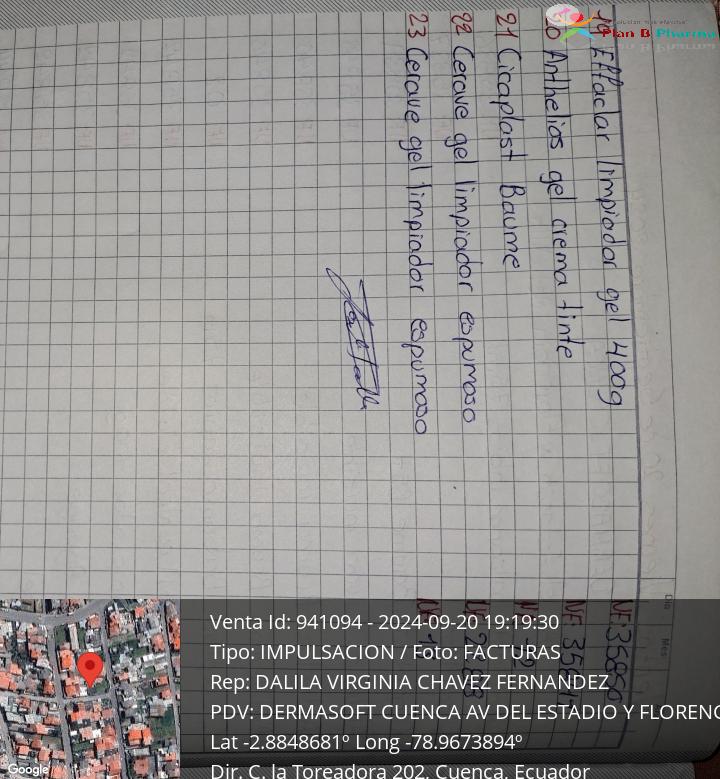 19 Effaclar limpiador gel 400g
20 Anthelios gel crema tinte
21 Cicaplast Baume
22 Cerave gel limpiador espumoso
23 Cerave gel limpiador espumoso
Plan B Pharma
Dia Mes
Venta Id: 941094 - 2024-09-20 19:19:30
Tipo: IMPULSACION / Foto: FACTURAS
Rep: DALILA VIRGINIA CHAVEZ FERNANDEZ
PDV: DERMASOFT CUENCA AV DEL ESTADIO Y FLORENC
Lat -2.8848681º Long -78.9673894º
Dir. C. la Toreadora 202, Cuenca, Ecuador
Google